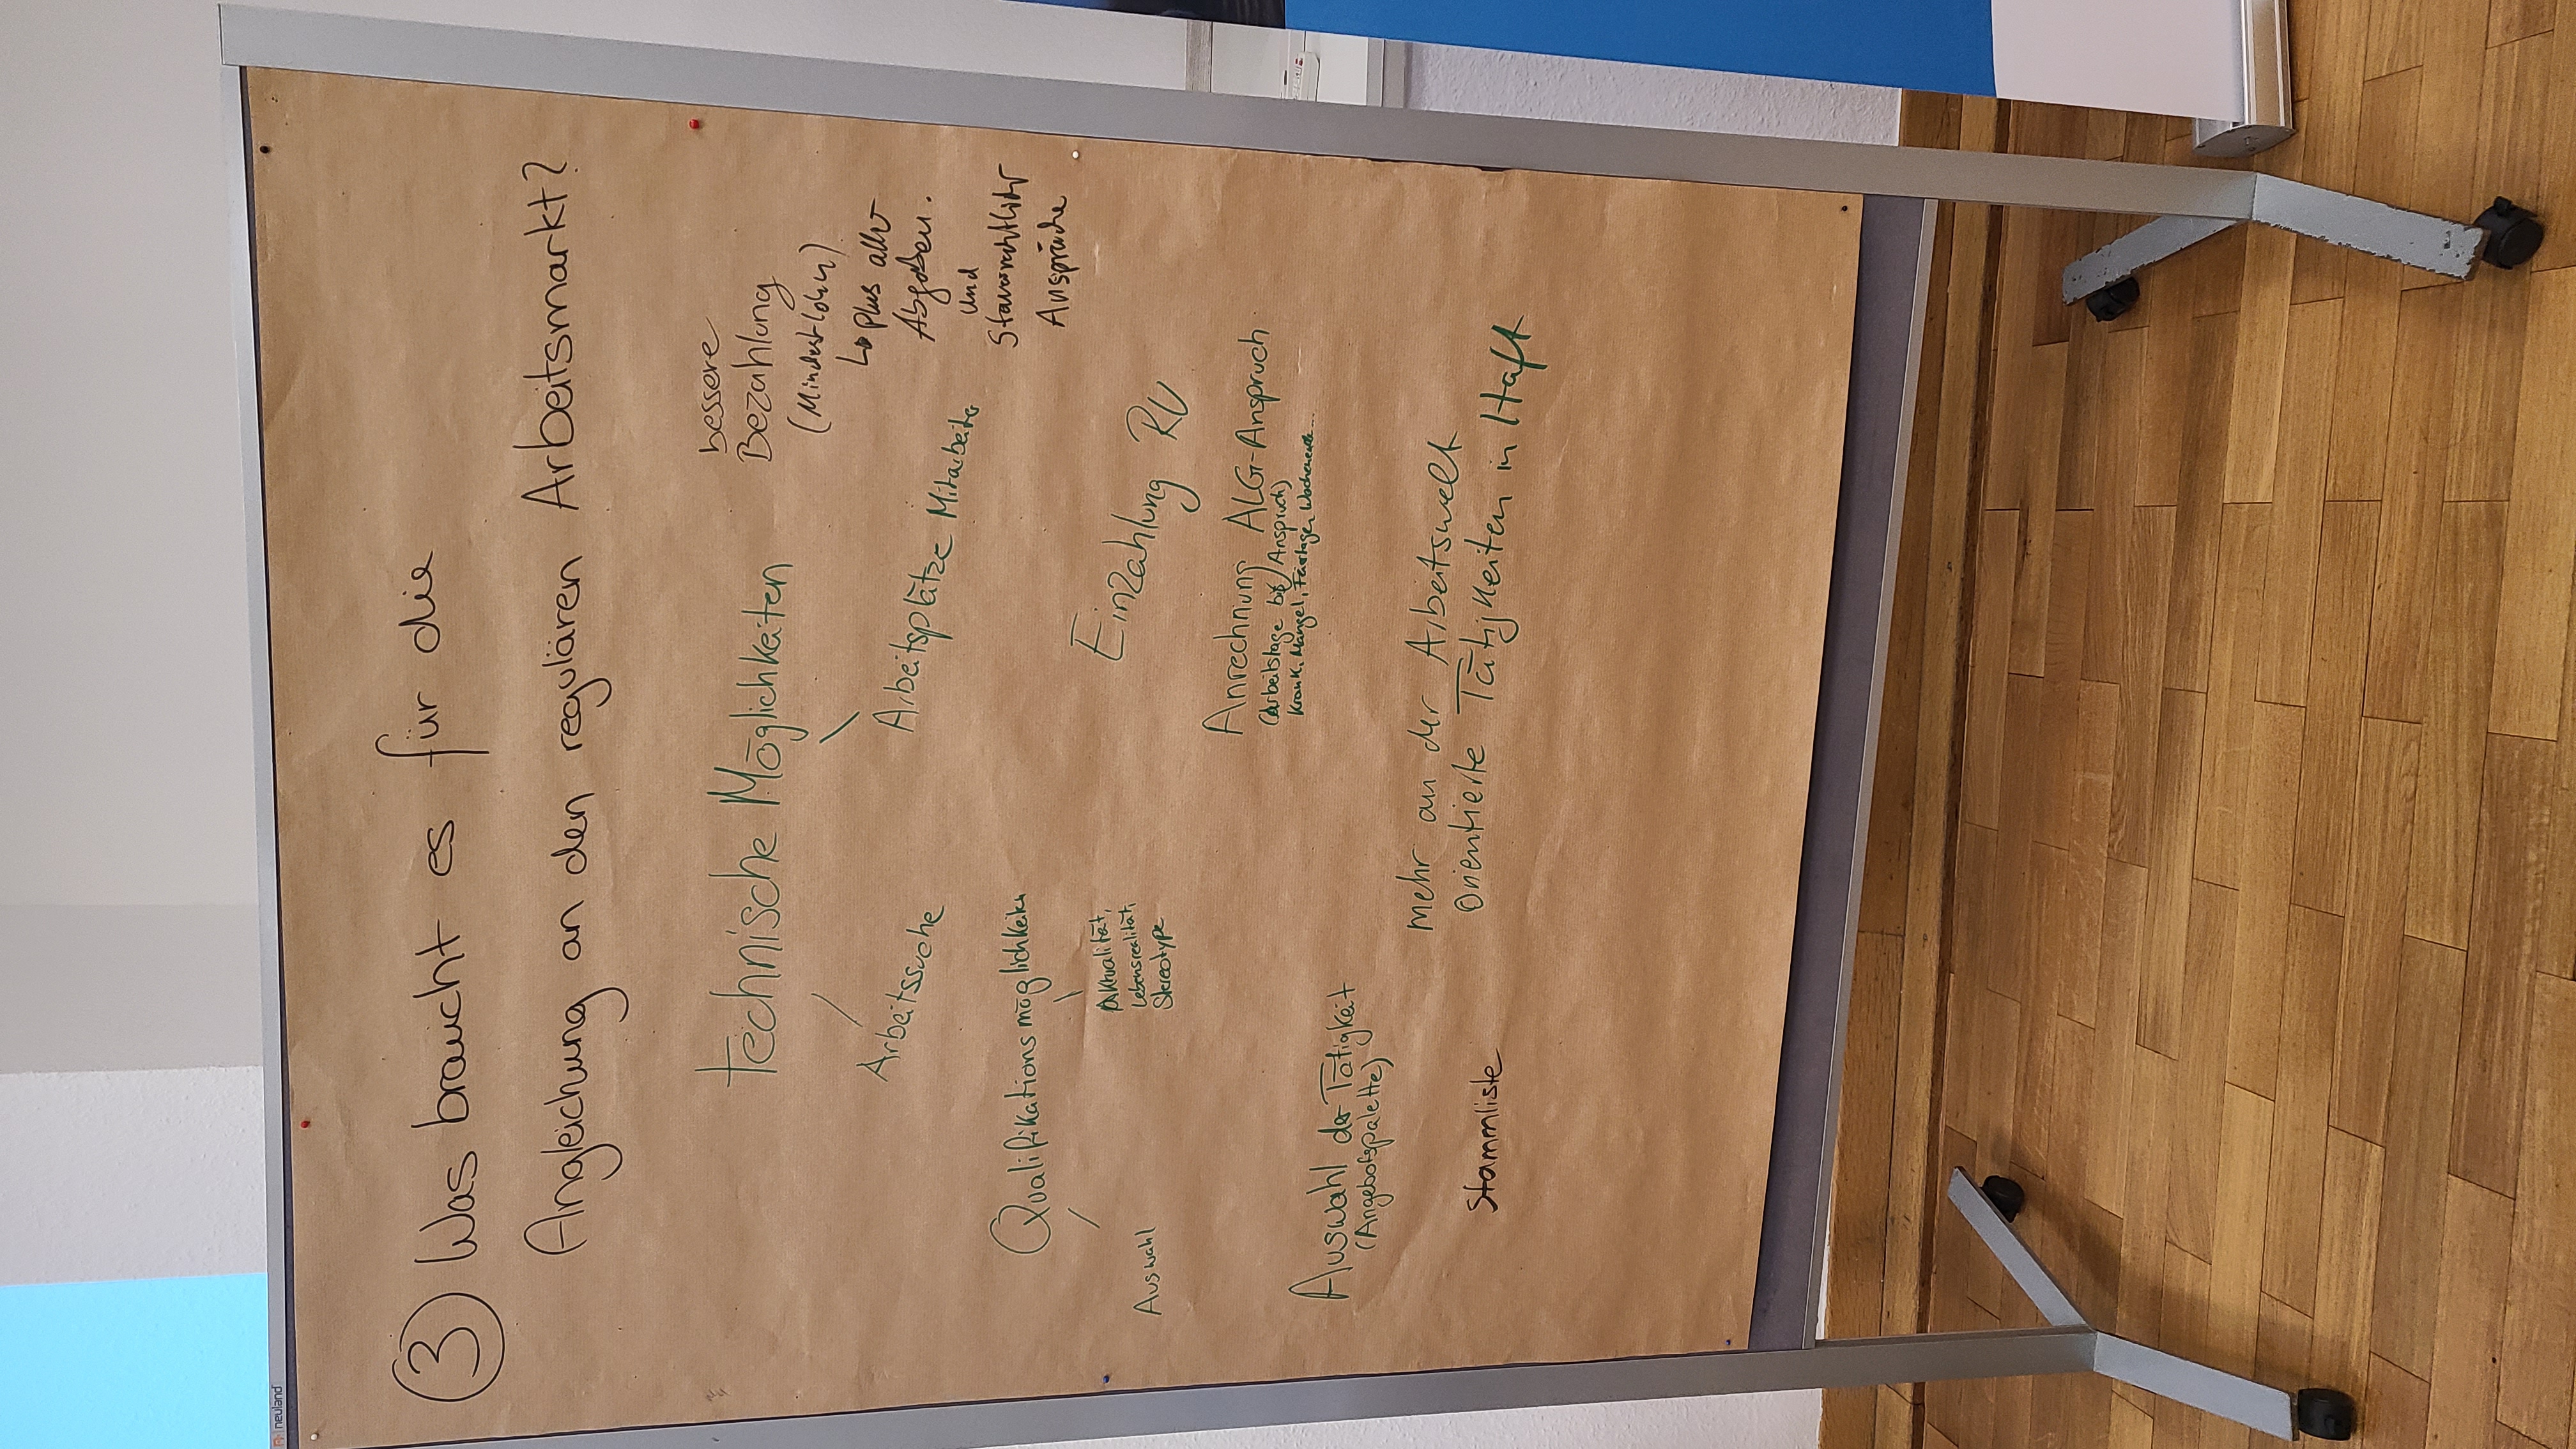 neuland
3 Was braucht es für die
Angleichung an den regulären Arbeitsmarkt?
Technische Möglichkeiten
Arbeitssuche
Arbeitsplätze Mitarbeiter
bessere
Bezahlung
(Mindestlohn)
↳ Plus aller
Abgaben.
und
Ansprüche
Qualifikationsmöglichkeiten
Auswahl
Aktualität,
Lebensrealität,
Stereotype
Einzahlung RV
Anrechnung ALG-Anspruch
(Arbeitstage Anspruch)
Krank, Mangel, Feiertage, Wochenende...
Auswahl der Tätigkeit
(Angebotspalette)
mehr an der Arbeitswelt
orientierte Tätigkeiten in Haft
Stammliste